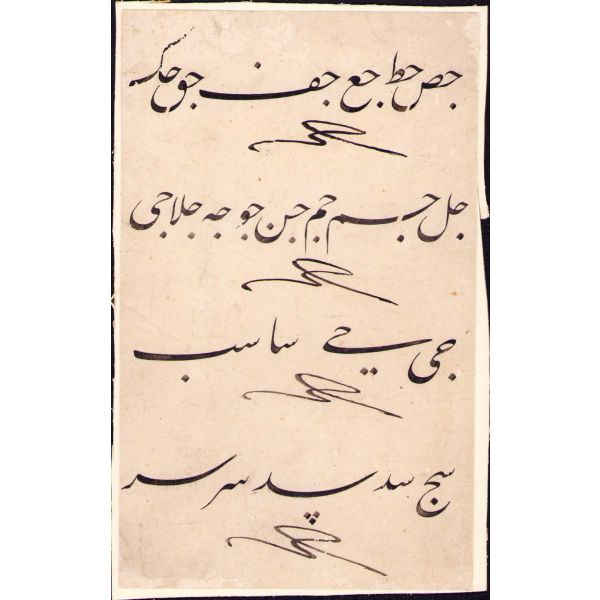 جص حط جع جف جق جک
جل جسم جم جن جو جه جلا جی
جی جے سا سب
سج سد سد سر سر